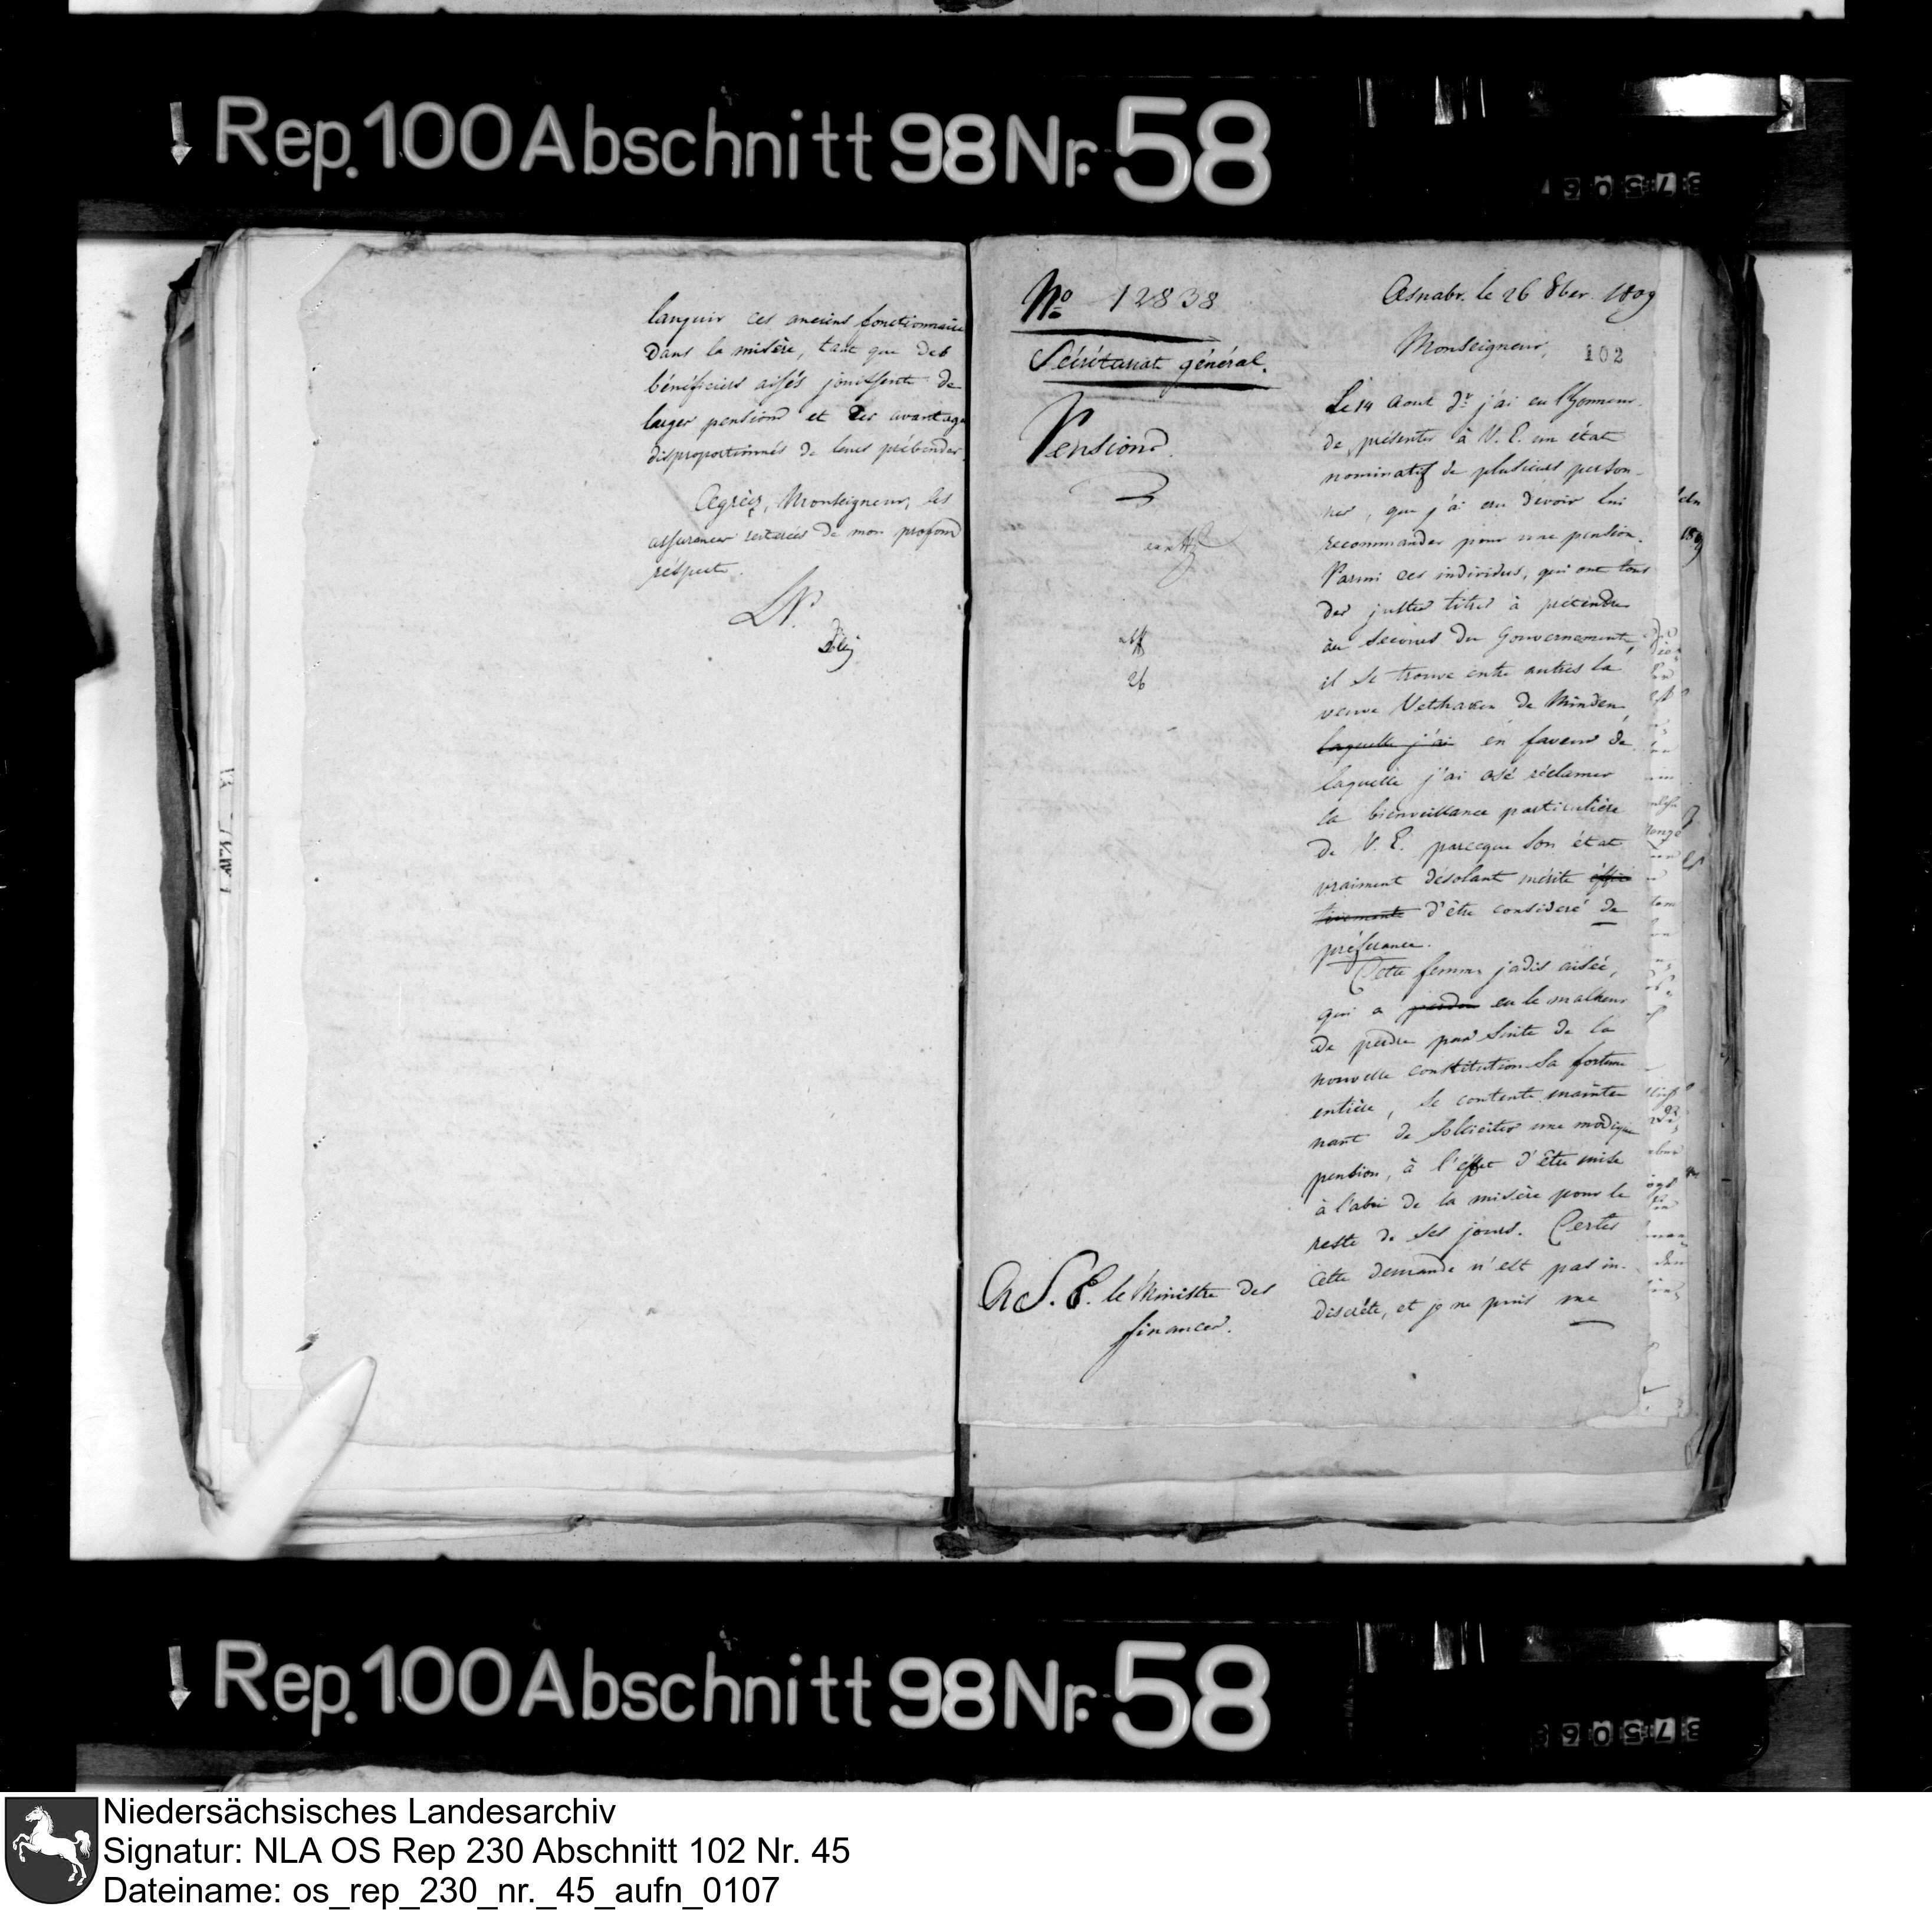 Rep. 100 Abschnitt 98 Nr. 58
languir ces anciens fonctionnaire
dans la misère, tant que des
bénéficiers aisés jouissent de
larges pensions et des avantage
disproportionnés de leurs prébendes.
Agréez, Monseigneur, les
assurances réiterées de mon profond
réspect.
No 12838
Sécrétariat général.
Pensions.
26
A S. E. le Ministre des
finances.
Osnabr. le 26 8ber 1809
Monseigneur,
102
Le 14 Aout dr j'ai eu l'honneur
de présenter à V. E. un état
nominatif de plusieurs person-
nes, que j'ai cru devoir lui
recommander pour une pension.
Parmi ces individus, qui ont tous
des justes titres à prétendre
au secours du Gouvernement,
il se trouve entre autres la
veuve de Minden,
laquelle j'ai en faveur de
laquelle j'ai osé réclamer
la bienveillance particulière
de V. E. parceque son état
vraiment désolant mérite
d'être consideré de
préferance.
Cette femme jadis aisée,
qui a perdu eu le malheur
de perdre par suite de la
nouvelle constitution sa fortune
entière, se contente mainte
nant de solliciter une modique
pension, à l'éffet d'être mise
à l'abri de la misère pour le
reste de ses jours. Certes
cette demande n'est pas in-
discrète, et je ne puis me
Rep. 100 Abschnitt 98 Nr. 58
Niedersächsisches Landesarchiv
Signatur: NLA OS Rep 230 Abschnitt 102 Nr. 45
Dateiname: os_rep_230_nr._45_aufn_0107